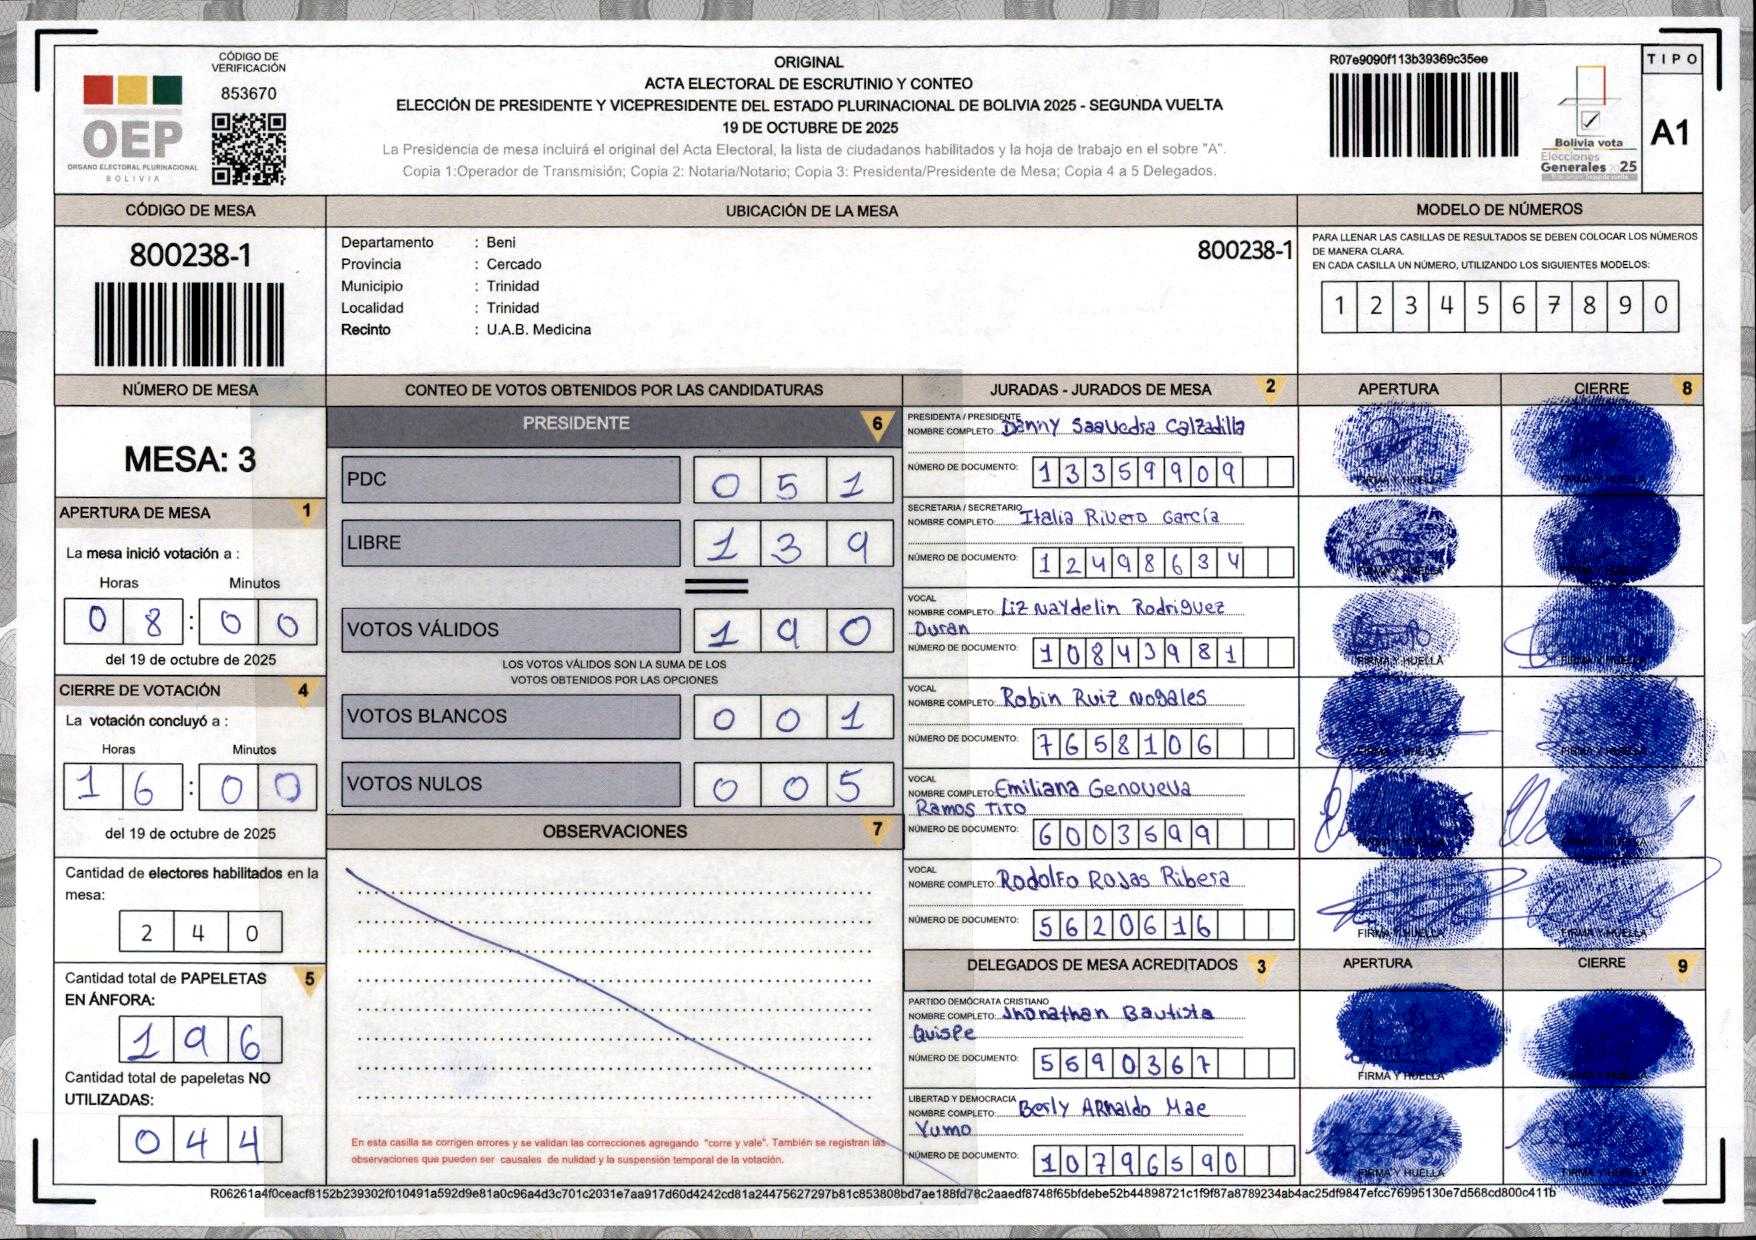 CÓDIGO DE
VERIFICACIÓN
853670
OEP
ORGANO ELECTORAL PLURINACIONAL
BOLIVIA
ORIGINAL
ACTA ELECTORAL DE ESCRUTINIO Y CONTEO
ELECCIÓN DE PRESIDENTE Y VICEPRESIDENTE DEL ESTADO PLURINACIONAL DE BOLIVIA 2025 - SEGUNDA VUELTA
19 DE OCTUBRE DE 2025
La Presidencia de mesa incluirá el original del Acta Electoral, la lista de ciudadanos habilitados y la hoja de trabajo en el sobre "A".
Copia 1:Operador de Transmisión; Copia 2: Notaria/Notario; Copia 3: Presidenta/Presidente de Mesa; Copia 4 a 5 Delegados.
R07e9090f113b39369c35ee
Bolivia vota
Elecciones
Generales 25
TIPO
A1
CÓDIGO DE MESA
800238-1
UBICACIÓN DE LA MESA
Departamento : Beni
Provincia : Cercado
Municipio : Trinidad
Localidad : Trinidad
Recinto : U.A.B. Medicina
800238-1
MODELO DE NÚMEROS
PARA LLENAR LAS CASILLAS DE RESULTADOS SE DEBEN COLOCAR LOS NÚMEROS
DE MANERA CLARA.
EN CADA CASILLA UN NÚMERO, UTILIZANDO LOS SIGUIENTES MODELOS:
1 2 3 4 5 6 7 8 9 0
NÚMERO DE MESA
MESA: 3
APERTURA DE MESA 1
La mesa inició votación a :
Horas Minutos
0 8 : 0 0
del 19 de octubre de 2025
CIERRE DE VOTACIÓN 4
La votación concluyó a :
Horas Minutos
1 6 : 0 0
del 19 de octubre de 2025
Cantidad de electores habilitados en la
mesa:
2 4 0
Cantidad total de PAPELETAS 5
EN ÁNFORA:
1 9 6
Cantidad total de papeletas NO
UTILIZADAS:
0 4 4
CONTEO DE VOTOS OBTENIDOS POR LAS CANDIDATURAS
PRESIDENTE 6
PDC 0 5 1
LIBRE 1 3 9
VOTOS VÁLIDOS 1 9 0
LOS VOTOS VÁLIDOS SON LA SUMA DE LOS
VOTOS OBTENIDOS POR LAS OPCIONES
VOTOS BLANCOS 0 0 1
VOTOS NULOS 0 0 5
OBSERVACIONES 7
En esta casilla se corrigen errores y se validan las correcciones agregando "corre y vale". También se registran las
observaciones que pueden ser causales de nulidad y la suspensión temporal de la votación.
JURADAS - JURADOS DE MESA 2 APERTURA CIERRE 8
PRESIDENTA / PRESIDENTE
NOMBRE COMPLETO: Danny Saavedra Calzadilla
NÚMERO DE DOCUMENTO: 1 3 3 5 9 9 0 9
FIRMA Y HUELLA
SECRETARIA / SECRETARIO
NOMBRE COMPLETO: Italia Rivero García
NÚMERO DE DOCUMENTO: 1 2 4 9 8 6 3 4
FIRMA Y HUELLA
VOCAL
NOMBRE COMPLETO: Liz Naydelin Rodriguez
Duran
NÚMERO DE DOCUMENTO: 1 0 8 4 3 9 8 1
FIRMA Y HUELLA FIRMA Y HUELLA
VOCAL
NOMBRE COMPLETO: Robin Ruiz Nogales
NÚMERO DE DOCUMENTO: 7 6 5 8 1 0 6
VOCAL
NOMBRE COMPLETO: Emiliana Genoveva
Ramos Tito
NÚMERO DE DOCUMENTO: 6 0 0 3 5 9 9
VOCAL
NOMBRE COMPLETO: Rodolfo Rojas Ribera
NÚMERO DE DOCUMENTO: 5 6 2 0 6 1 6
FIRMA Y HUELLA FIRMA Y HUELLA
DELEGADOS DE MESA ACREDITADOS 3 APERTURA CIERRE 9
PARTIDO DEMÓCRATA CRISTIANO
NOMBRE COMPLETO: Jhonathan Bautista
Quispe
NÚMERO DE DOCUMENTO: 5 6 9 0 3 6 7
FIRMA Y HUELLA FIRMA Y HUELLA
LIBERTAD Y DEMOCRACIA
NOMBRE COMPLETO: Berly Arnaldo Mae
Yumo
NÚMERO DE DOCUMENTO: 1 0 7 9 6 5 9 0
FIRMA Y HUELLA FIRMA Y HUELLA